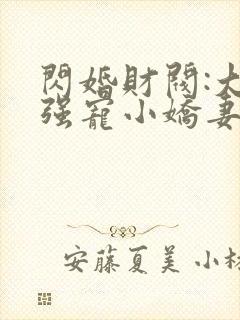 閃婚財閥:大
强寵小嬌妻
安藤夏美 小林